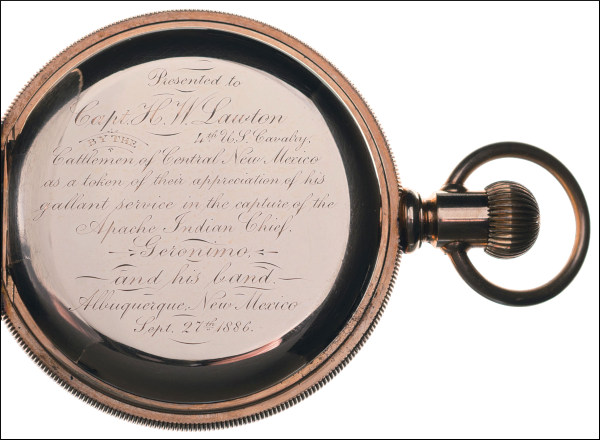 Presented to
Capt. H. W. Lawton
BY THE 4th U.S. Cavalry.
Cattlemen of Central New Mexico
as a token of their appreciation of his
gallant service in the capture of the
Apache Indian Chief.
Geronimo.
and his band.
Albuquerque, New Mexico
Sept. 27th 1886.